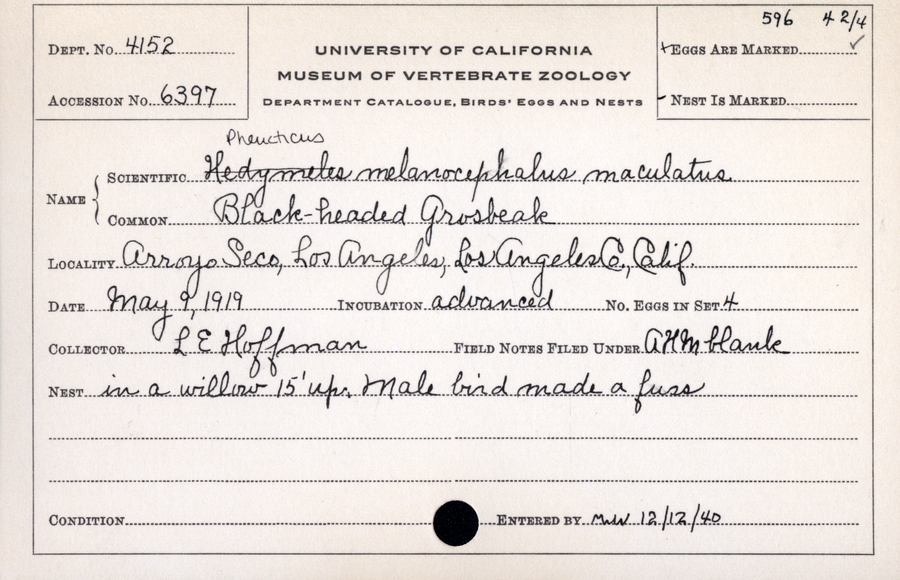 596 4 2/4
DEPT. No. 4152
UNIVERSITY OF CALIFORNIA
EGGS ARE MARKED ✓
MUSEUM OF VERTEBRATE ZOOLOGY
ACCESSION No. 6397
DEPARTMENT CATALOGUE, BIRDS' EGGS AND NESTS
NEST IS MARKED
Pheucticus
NAME
SCIENTIFIC Hedymeles melanocephalus maculatus
COMMON Black-headed Grosbeak
LOCALITY Arroyo Seco, Los Angeles, Los Angeles Co., Calif.
DATE May 9, 1919 INCUBATION advanced No. EGGS IN SET 4
COLLECTOR L E Hoffman FIELD NOTES FILED UNDER AHM blank
NEST in a willow 15' up. Male bird made a fuss
CONDITION ENTERED BY 12/12/40